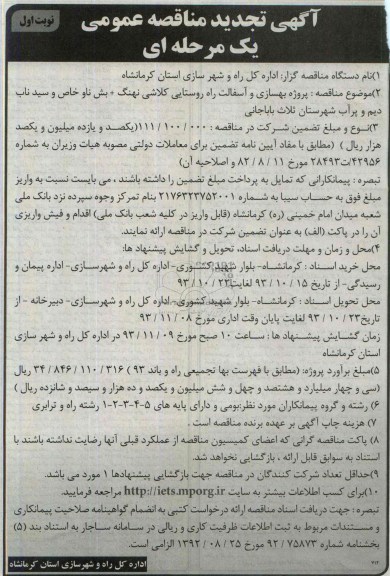 آگهی تجدید مناقصه عمومی
یک مرحله ای
نوبت اول
۱)نام دستگاه مناقصه گزار: اداره کل راه و شهر سازی استان کرمانشاه
۲)موضوع مناقصه : پروژه بهسازی و آسفالت راه روستایی کلاشی نهنگ + بش ناو خاص و سید ناب
دیم و پرآب شهرستان ثلاث باباجانی
۳)نوع و مبلغ تضمین شرکت در مناقصه : ۱۱۱/۱۰۰/۰۰۰(یکصد و یازده میلیون و یکصد
هزار ریال ) (مطابق با مفاد آیین نامه تضمین برای معاملات دولتی مصوبه هیات وزیران به شماره
۴۲۹۵۶/ت۲۸۴۹۳ مورخ ۸۲/۸/۱۱ و اصلاحیه آن)
تبصره : پیمانکارانی که تمایل به پرداخت مبلغ تضمین را داشته باشند ، می بایست نسبت به واریز
مبلغ فوق به حساب سیبا به شماره ۲۱۷۶۴۳۲۷۵۲۰۰۱ بنام تمرکز وجوه سپرده نزد بانک ملی
شعبه میدان امام خمینی (ره) کرمانشاه (قابل واریز در کلیه شعب بانک ملی) اقدام و فیش واریزی
آن را در پاکت (الف) به عنوان تضمین شرکت در مناقصه ارائه نمایند.
۴)محل و زمان و مهلت دریافت اسناد، تحویل و گشایش پیشنهاد ها:
محل خرید اسناد : کرمانشاه- بلوار شهید کشوری- اداره کل راه و شهرسازی- اداره پیمان و
رسیدگی- از تاریخ ۹۳/۱۰/۱۵ لغایت ۹۳/۱۰/۲۲
محل تحویل اسناد : کرمانشاه- بلوار شهید کشوری- اداره کل راه و شهرسازی- دبیرخانه - از
تاریخ ۹۳/۱۰/۲۳ لغایت پایان وقت اداری مورخ ۹۳/۱۱/۰۸
زمان گشایش پیشنهاد ها : ساعت ۱۰ صبح مورخ ۹۳/۱۱/۰۹ در اداره کل راه و شهر سازی
استان کرمانشاه
۵)مبلغ برآورد پروژه: (مطابق با فهرست بها تجمیعی راه و باند ۹۳ ) ۳۴/۸۴۶/۱۱۰/۳۱۶ ریال
(سی و چهار میلیارد و هشتصد و چهل و شش میلیون و یکصد و ده هزار و سیصد و شانزده ریال )
۶) رشته و گروه پیمانکاران مورد نظر:بومی و دارای پایه های ۵-۴-۳-۲-۱ رشته راه و ترابری
۷) هزینه چاپ آگهی بر عهده برنده مناقصه است .
۸) پاکت مناقصه گرانی که اعضای کمیسیون مناقصه از عملکرد قبلی آنها رضایت نداشته باشند با
استناد به سوابق قابل ارائه ، بازگشایی نخواهد شد.
۹)حداقل تعداد شرکت کنندگان در مناقصه جهت بازگشایی پیشنهادها ۱ مورد می باشد.
۱۰)برای کسب اطلاعات بیشتر به سایت http://iets.mporg.ir مراجعه فرمایید.
تبصره: جهت دریافت اسناد مناقصه ارائه درخواست کتبی به انضمام گواهینامه صلاحیت پیمانکاری
و مستندات مربوط به ثبت اطلاعات ظرفیت کاری و ریالی در سامانه ساجار به استناد بند (۵)
بخشنامه شماره ۹۲/۷۵۸۷۳ مورخ ۱۳۹۲/۰۸/۲۵ الزامی است.
اداره کل راه و شهرسازی استان کرمانشاه